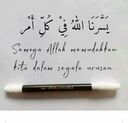 يَسَّرَنَا اللهُ فِيْ كُلِّ أَمْرٍ
Semoga Allah memudahkan
kita dalam segala urusan